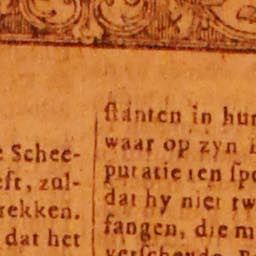 Schee-
eft, zul-
rekken.
dat het
ſtanten in hun
waar op zyn
putatie ten ſpo
dat hy niet tw
fangen, die m
verſcheyde